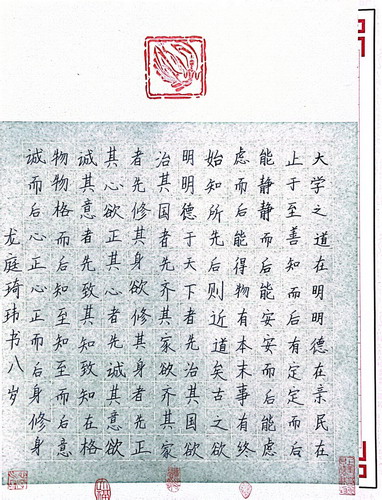 大学之道在明明德在亲民在
止于至善知而后有定定而后
能静静而后能安安而后能虑
虑而后能得物有本末事有终
始知所先后则近道矣古之欲
明明德于天下者先治其国欲
治其国者先齐其家欲齐其家
者先修其身欲修其身者先正
其心欲正其心者先诚其意欲
诚其意者先致其知致知在格
物物格而后知至知至而后意
诚而后心正心正而后身修身
龙庭琦玮书八岁